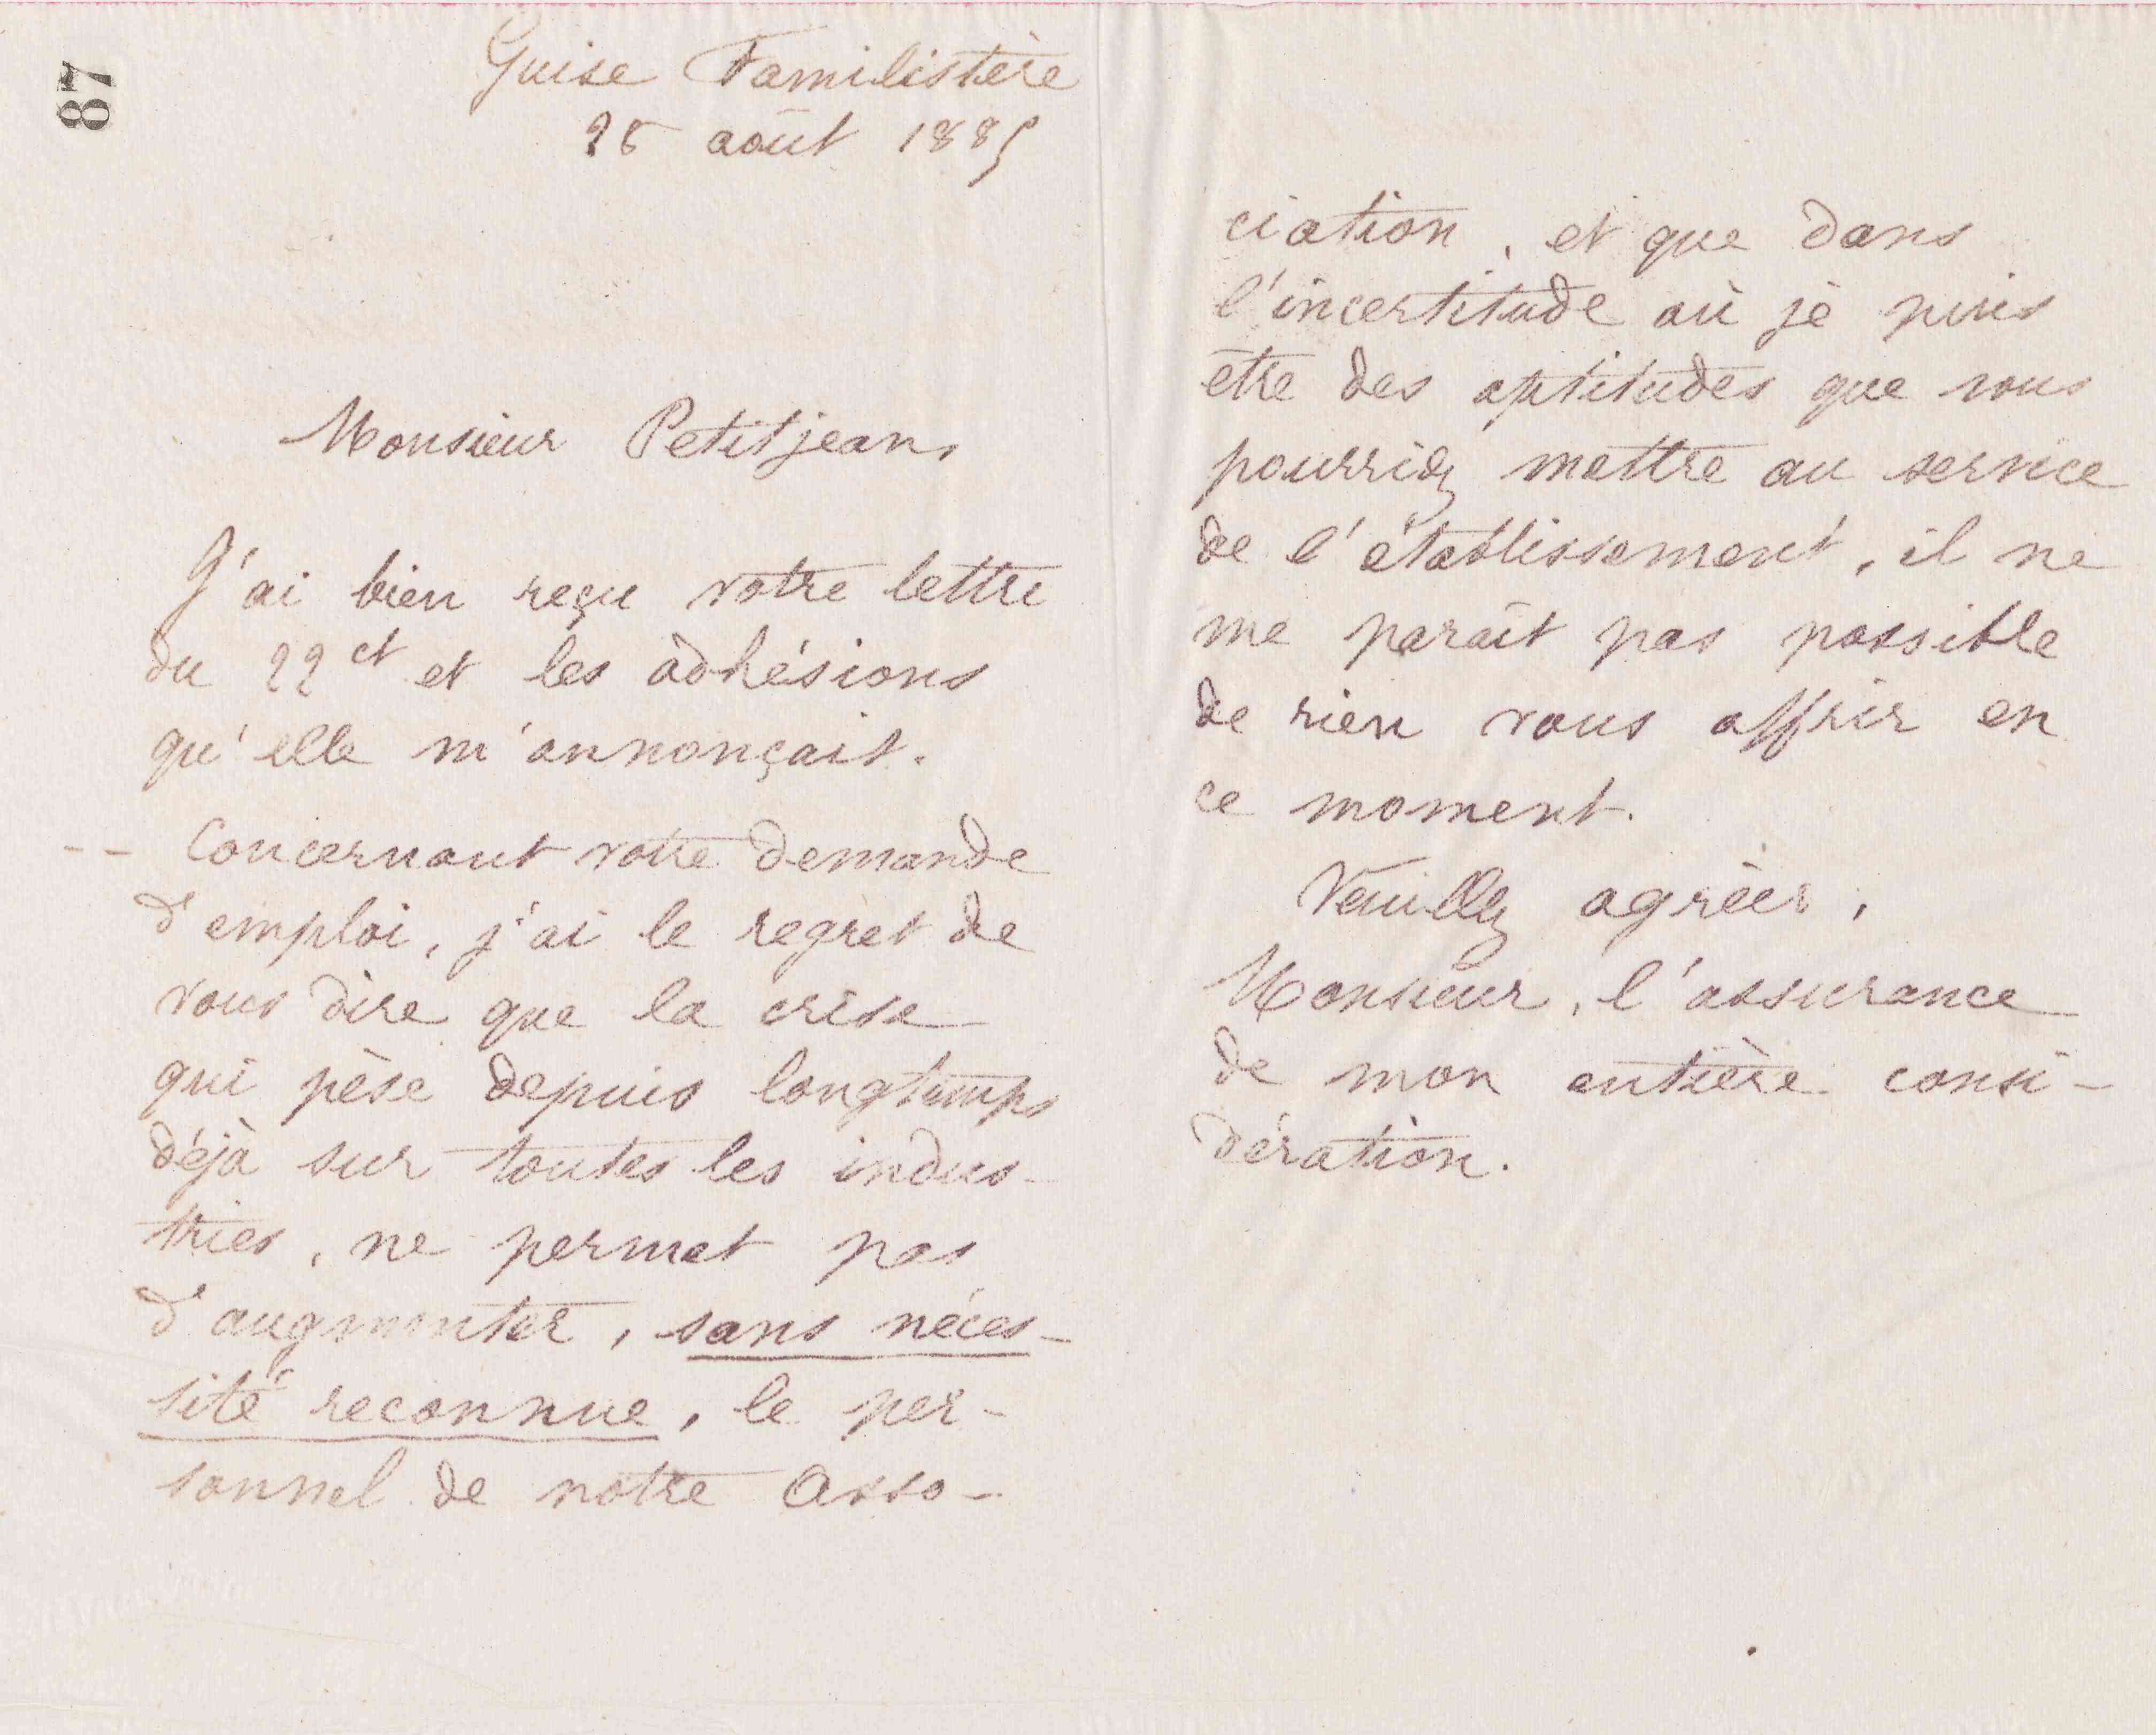 87
Guise Familistère
25 août 1885
Monsieur Petitjean,
J'ai bien reçu votre lettre
du 22 ct et les adhésions
qu'elle m'annonçait.
-- Concernant votre demande
d'emploi, j'ai le regret de
vous dire que la crise
qui pèse depuis longtemps
déjà sur toutes les indus-
tries, ne permet pas
d'augmenter, sans néces-
sité reconnue, le per-
sonnel de notre Asso-
ciation, et que dans
l'incertitude où je puis
être des aptitudes que vous
pourriez mettre au service
de l'établissement, il ne
me paraît pas possible
de rien vous offrir en
ce moment.
Veuillez agréer,
Monsieur, l'assurance
de mon entière consi-
dération.